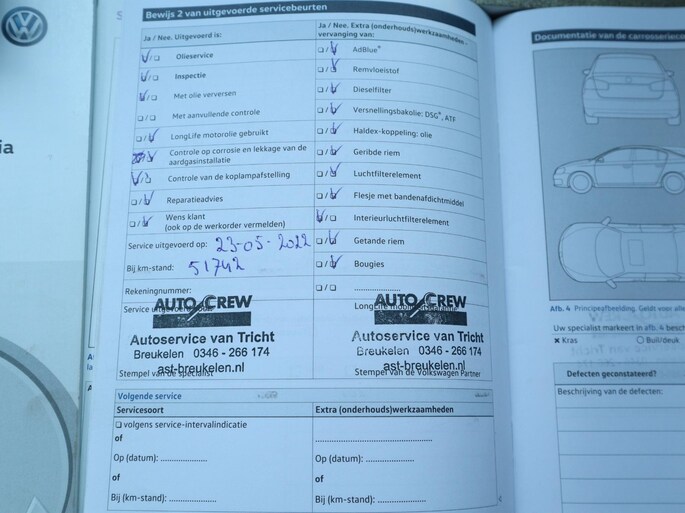 Bewijs 2 van uitgevoerde servicebeurten
Ja / Nee. Uitgevoerd is:
Olieservice
Inspectie
Met olie verversen
Met aanvullende controle
LongLife motorolie gebruikt
Controle op corrosie en lekkage van de
aardgasinstallatie
Controle van de koplampafstelling
Reparatieadvies
Wens klant
(ook op de werkorder vermelden)
Service uitgevoerd op: 23-05-2022
Bij km-stand: 51742
Rekeningnummer:
Service
AUTO CREW
Autoservice van Tricht
Breukelen 0346 - 266 174
ast-breukelen.nl
Stempel van de specialist
Ja / Nee. Extra (onderhouds)werkzaamheden -
vervanging van:
AdBlue®
Remvloeistof
Dieselfilter
Versnellingsbakolie: DSG®, ATF
Haldex-koppeling: olie
Geribde riem
Luchtfilterelement
Flesje met bandenafdichtmiddel
Interieurluchtfilterelement
Getande riem
Bougies
....................
AUTO CREW
Autoservice van Tricht
Breukelen 0346 - 266 174
ast-breukelen.nl
Stempel van de Volkswagen Partner
Volgende service
Servicesoort
volgens service-intervalindicatie
of
Op (datum): ....................
of
Bij (km-stand): ....................
Extra (onderhouds)werkzaamheden
........................................
of
Op (datum): ....................
of
Bij (km-stand): ....................
Documentatie van de carrosserieco
Afb. 4 Principeafbeelding. Geldt voor alle
Uw specialist markeert in afb. 4 besch
× Kras
Buil/deuk
Defecten geconstateerd?
Beschrijving van de defecten:
ia